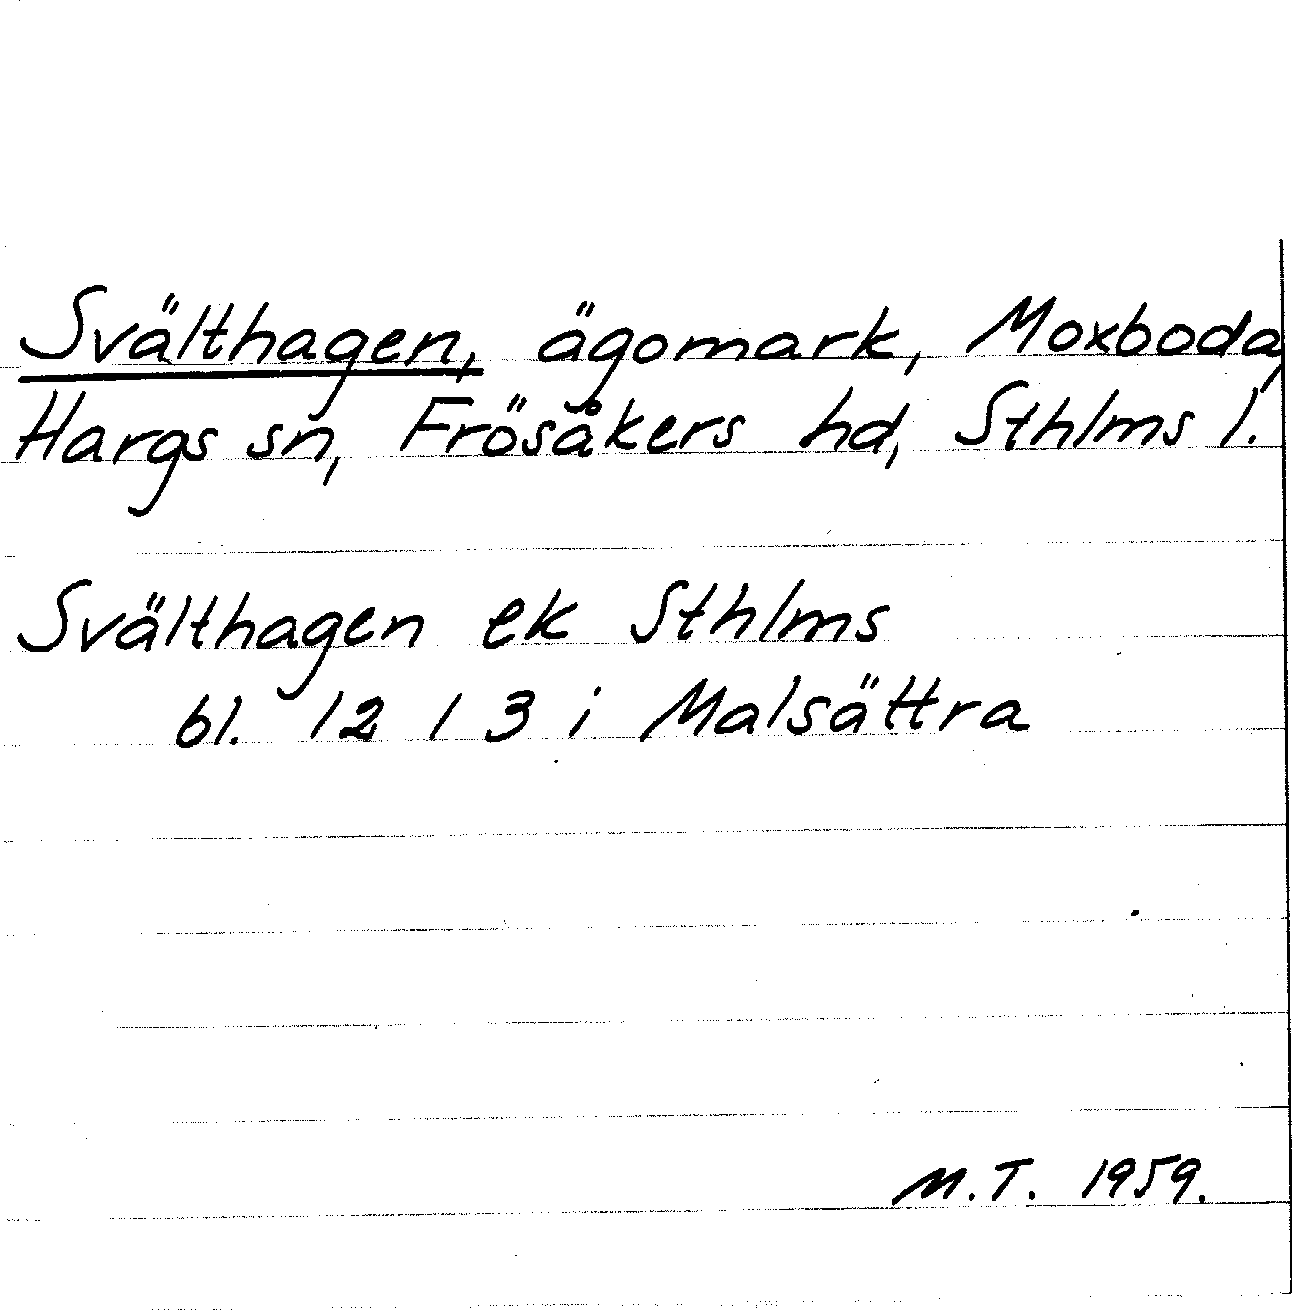 Svälthagen, ägomark, Moxboda,
Hargs sn, Frösåkers hd, Sthlms l.
Svälthagen ek Sthlms
bl. 12 1 3 i Malsättra
M.T. 1959.